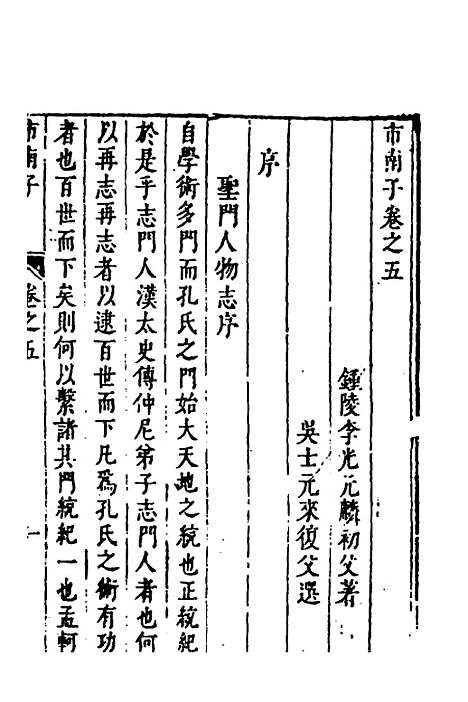 市南子卷之五
鍾陵李光元麟初父著
吳士元來復父選
序
聖門人物志序
自學術多門而孔氏之門始大天地之統也正統紀
於是乎志門人漢太史傳仲尼弟子志門人者也何
以再志再志者以逮百世而下凡爲孔氏之術有功
者也百世而下矣則何以繫諸其門統紀一也孟軻
市南子 卷之五 一